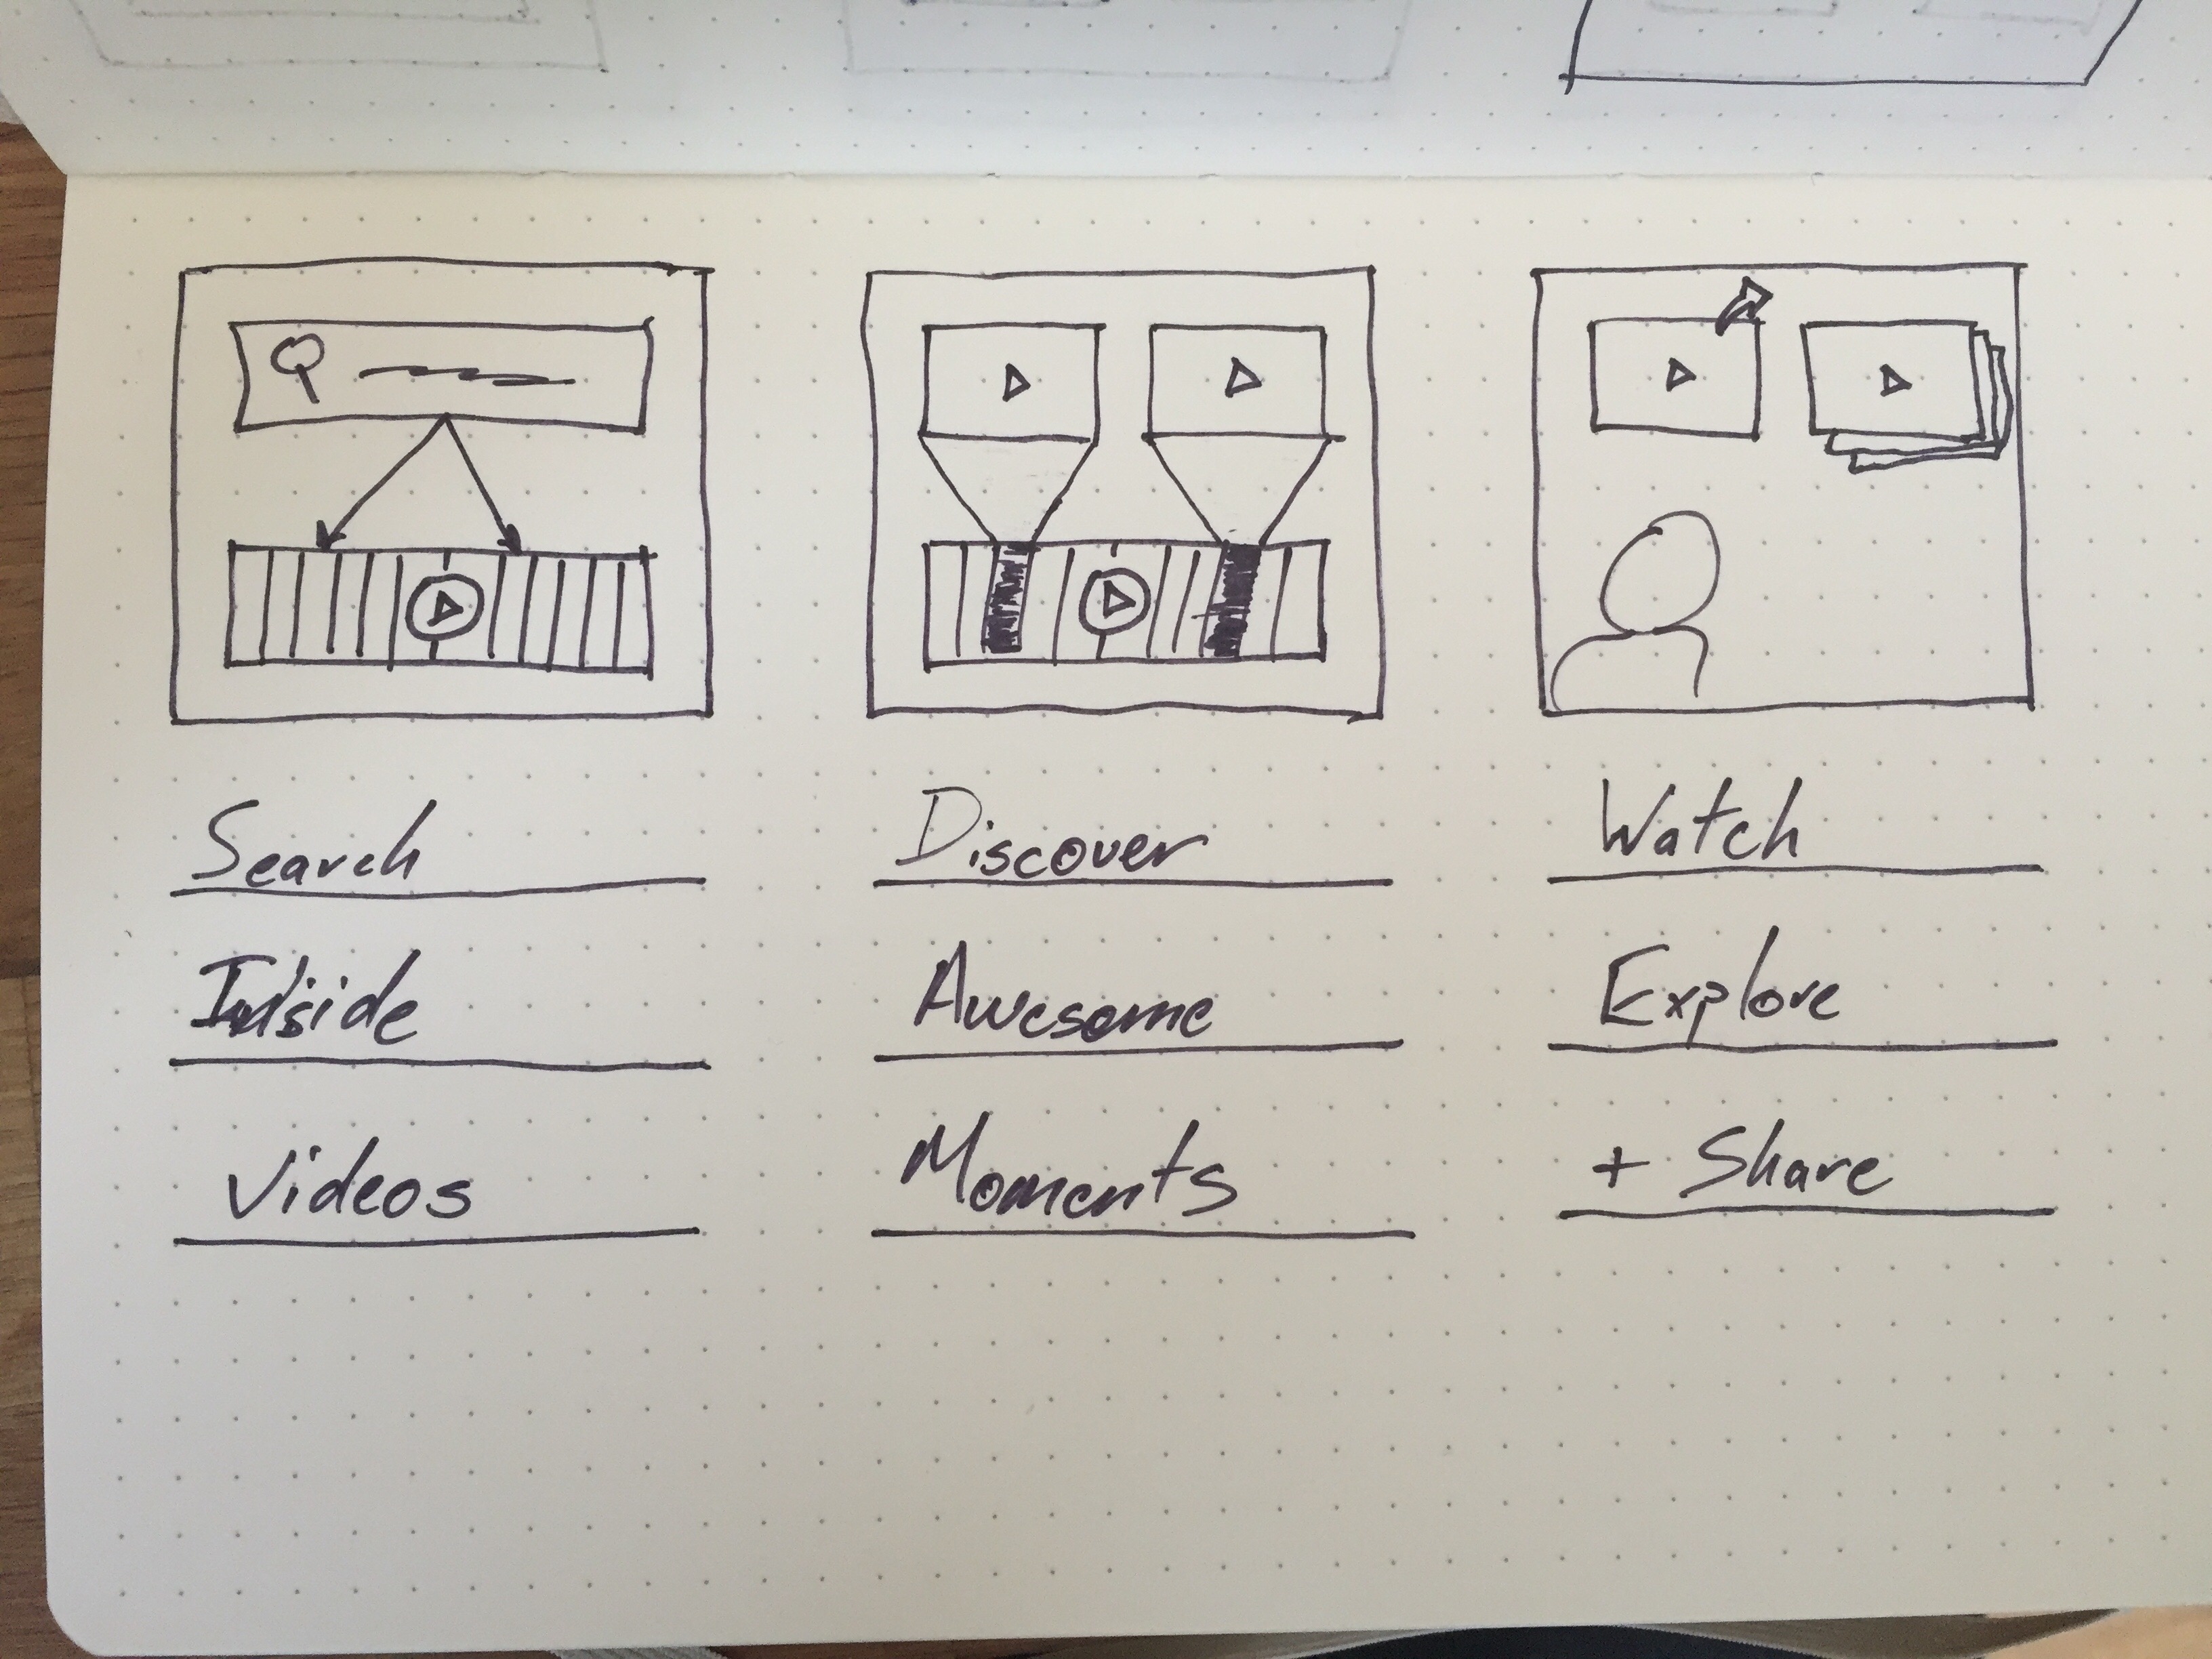 Search
Inside
Videos
Discover
Awesome
Moments
Watch
Explore
+ Share